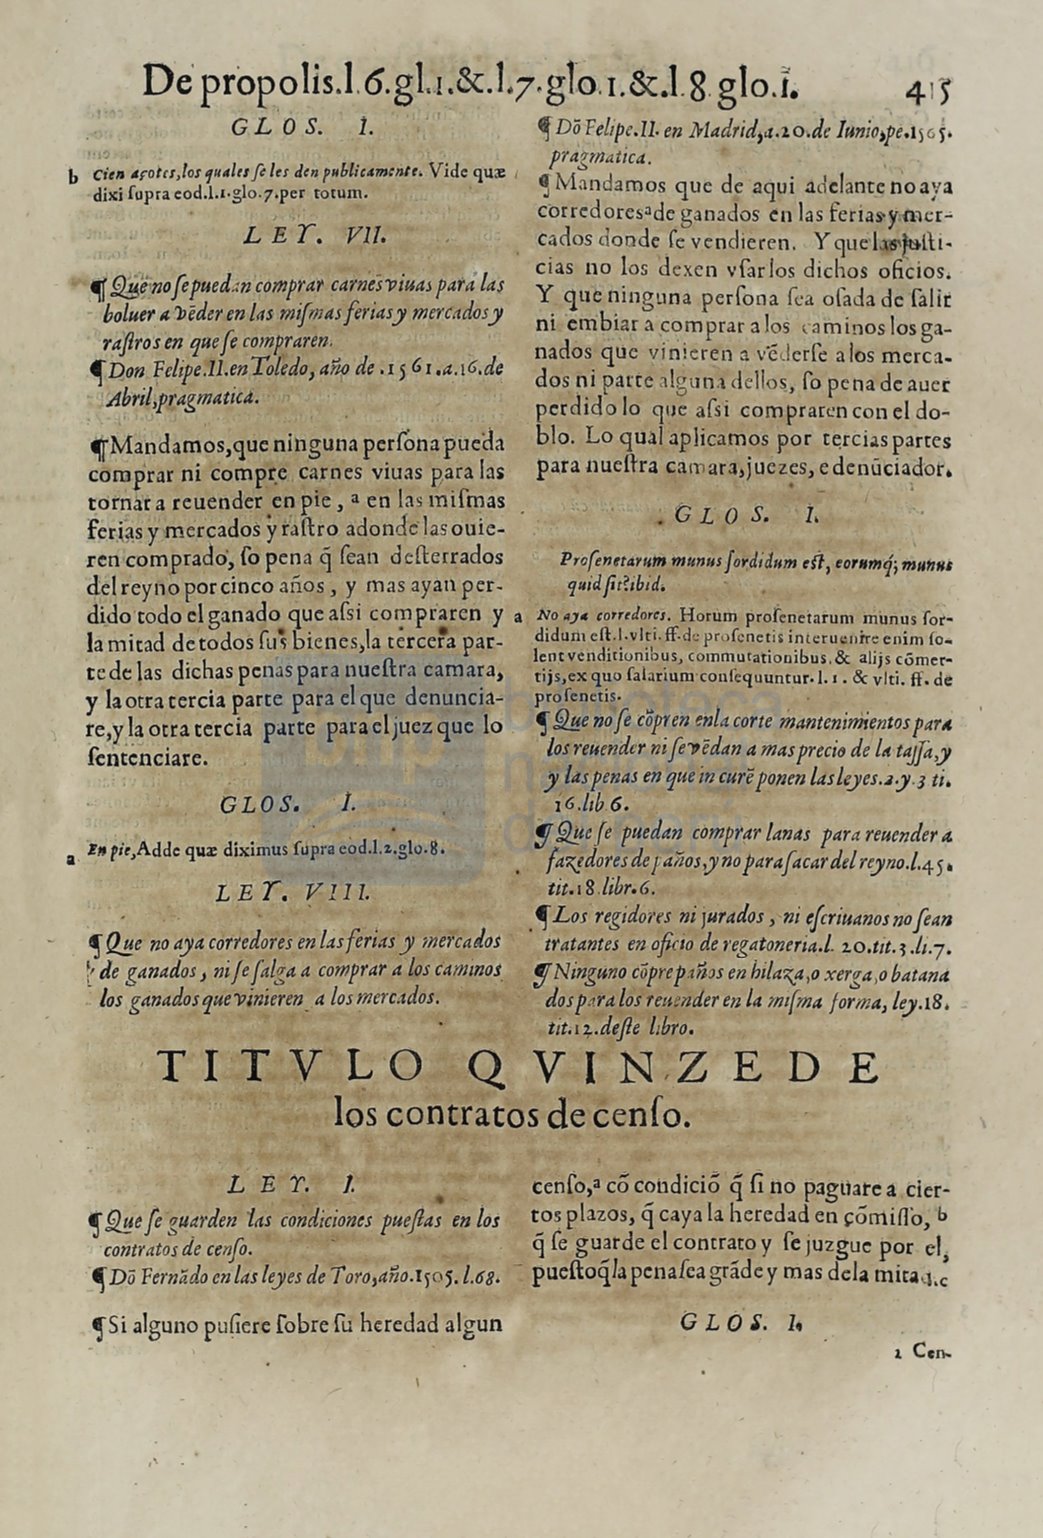 De propolis.l.6.gl.1.&.l.7.glo.1.&.l.8.glo.i. 415
GLOS. I.
b Cien açotes,los quales ſe les den publicamente. Vide quæ
dixi ſupra eod.l.1.glo.7.per totum.
LEY. VII.
¶ Que no ſe puedan comprar carnes viuas para las
boluer a vēder en las miſmas ferias y mercados y
raſtros en que ſe compraren.
¶ Don Felipe.II.en Toledo, año de .1561.a.16.de
Abril,pragmatica.
¶Mandamos,que ninguna perſona pueda
comprar ni compre carnes viuas para las
tornar a reuender en pie , a en las miſmas
ferias y mercados y raſtro adonde las ouie-
ren comprado, ſo pena q̃ ſean deſterrados
del reyno por cinco años , y mas ayan per-
dido todo el ganado que aſsi compraren y
la mitad de todos ſus bienes,la tercera par-
te de las dichas penas para nueſtra camara,
y la otra tercia parte para el que denuncia-
re,y la otra tercia parte para el juez que lo
ſentenciare.
GLOS. I.
a En pie,Adde quæ diximus ſupra eod.l.2.glo.8.
LEY. VIII.
¶ Que no aya corredores en las ferias y mercados
de ganados , ni ſe ſalga a comprar a los caminos
los ganados que vinieren a los mercados.
¶ Dō Felipe.II. en Madrid,a.20.de Iunio,pe.1505.
pragmatica.
¶ Mandamos que de aqui adelante no aya
corredores a de ganados en las ferias y mer-
cados donde ſe vendieren. Y que las juſti-
cias no los dexen vſar los dichos oficios.
Y que ninguna perſona ſea oſada de ſalir
ni embiar a comprar a los caminos los ga-
nados que vinieren a vēderſe a los merca-
dos ni parte alguna dellos, ſo pena de auer
perdido lo que aſsi compraren con el do-
blo. Lo qual aplicamos por tercias partes
para nueſtra camara,juezes, e denūciador.
GLOS. I.
Proſenetarum munus ſordidum eſt, eorumq́; munus
quid ſit?ibid.
a No aya corredores. Horum proſenetarum munus ſor-
didum eſt.l.vlti.ff.de proſenetis interuenire enim ſo-
lent venditionibus, commutationibus.& alijs cōmer-
tijs,ex quo ſalarium conſequuntur.l.1. & vlti. ff. de
proſenetis.
¶ Que no ſe cōpren enla corte mantenimientos para
los reuender ni ſe vēdan a mas precio de la taſſa,y
y las penas en que in curē ponen las leyes.2.y.3 ti.
16.lib 6.
¶ Que ſe puedan comprar lanas para reuender a
fazedores de paños,y no para ſacar del reyno.l.45.
tit.18.libr.6.
¶ Los regidores ni jurados , ni eſcriuanos no ſean
tratantes en oficio de regatoneria.l. 20.tit.3.li.7.
¶ Ninguno cōpre paños en hilaza,o xerga,o batana
dos para los reuender en la miſma forma, ley.18.
tit.12.deſte libro.
TITVLO QVINZE DE
los contratos de cenſo.
LEY. I.
¶ Que ſe guarden las condiciones pueſtas en los
contratos de cenſo.
¶ Dō Fernādo en las leyes de Toro,año.1505. l.68.
¶ Si alguno puſiere ſobre ſu heredad algun
cenſo,a cō condiciō q̃ ſi no paguare a cier-
tos plazos, q̃ caya la heredad en cōmiſſo, b
q̃ ſe guarde el contrato y ſe juzgue por el,
pueſto q̃ la pena ſea grāde y mas dela mitad.c
GLOS. I.
1 Cen-